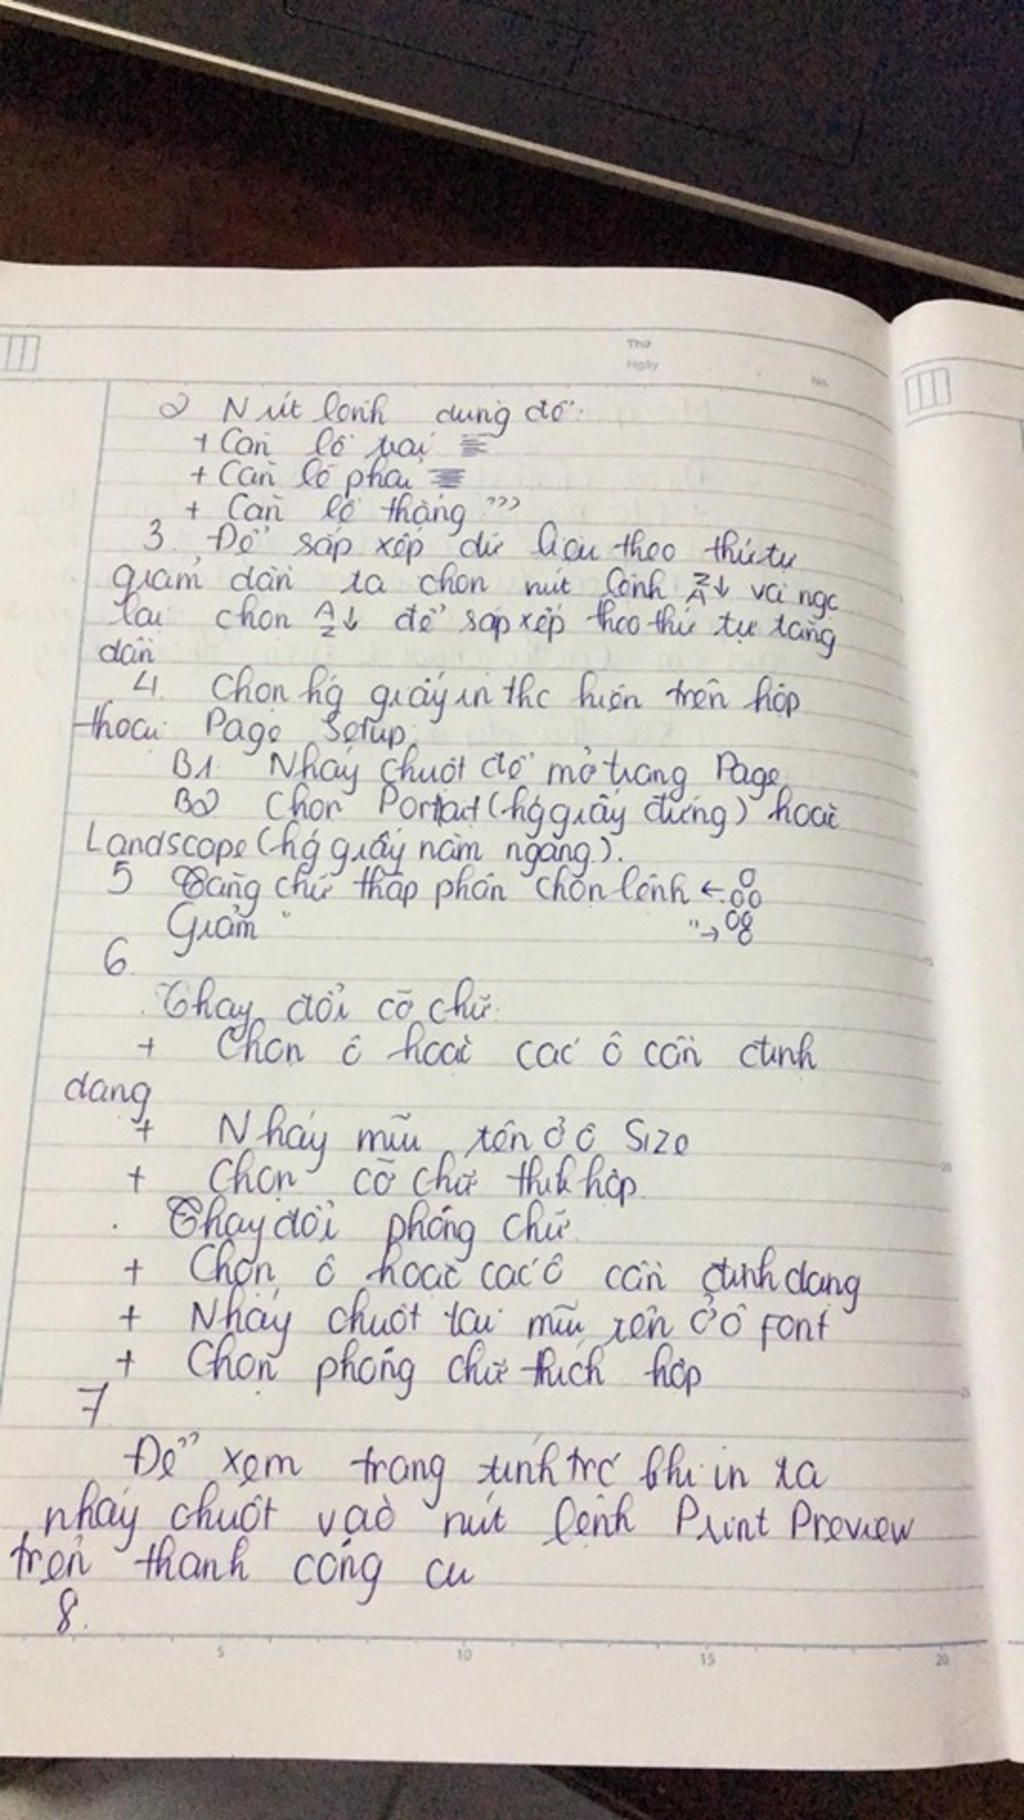 Thứ
Ngày
No.
2 Nút lệnh dùng để:
+ Căn lề trái
+ Căn lề phải
+ Căn lề thẳng ”’
3. Để sắp xếp dữ liệu theo thứ tự
giảm dần ta chọn nút lệnh Z/A↓ và ngc
lại chọn A/Z↓ để sắp xếp theo thứ tự tăng
dần
4. Chọn hg giấy in thc hiện trên hộp
thoại Page Setup.
B1. Nháy chuột để mở trang Page.
B2 Chọn Portrait (hg giấy đứng) hoặc
Landscope (hg giấy nằm ngang).
5 Tăng chữ thập phân chọn lệnh ←.0 00
Giảm " " → 00 0
6.
. Thay đổi cỡ chữ.
+ Chọn ô hoặc các ô cần định
dạng
+ Nháy mũi tên ở ô Size
+ Chọn cỡ chữ thik hợp.
. Thay đổi phông chữ
+ Chọn ô hoặc các ô cần định dạng
+ Nháy chuột tại mũi tên ở ô Font
+ Chọn phông chữ thích hợp
7
Để xem trang tính trc khi in ta
nháy chuột vào nút lệnh Print Preview
trên thanh công cụ
8.
5 10 15 20